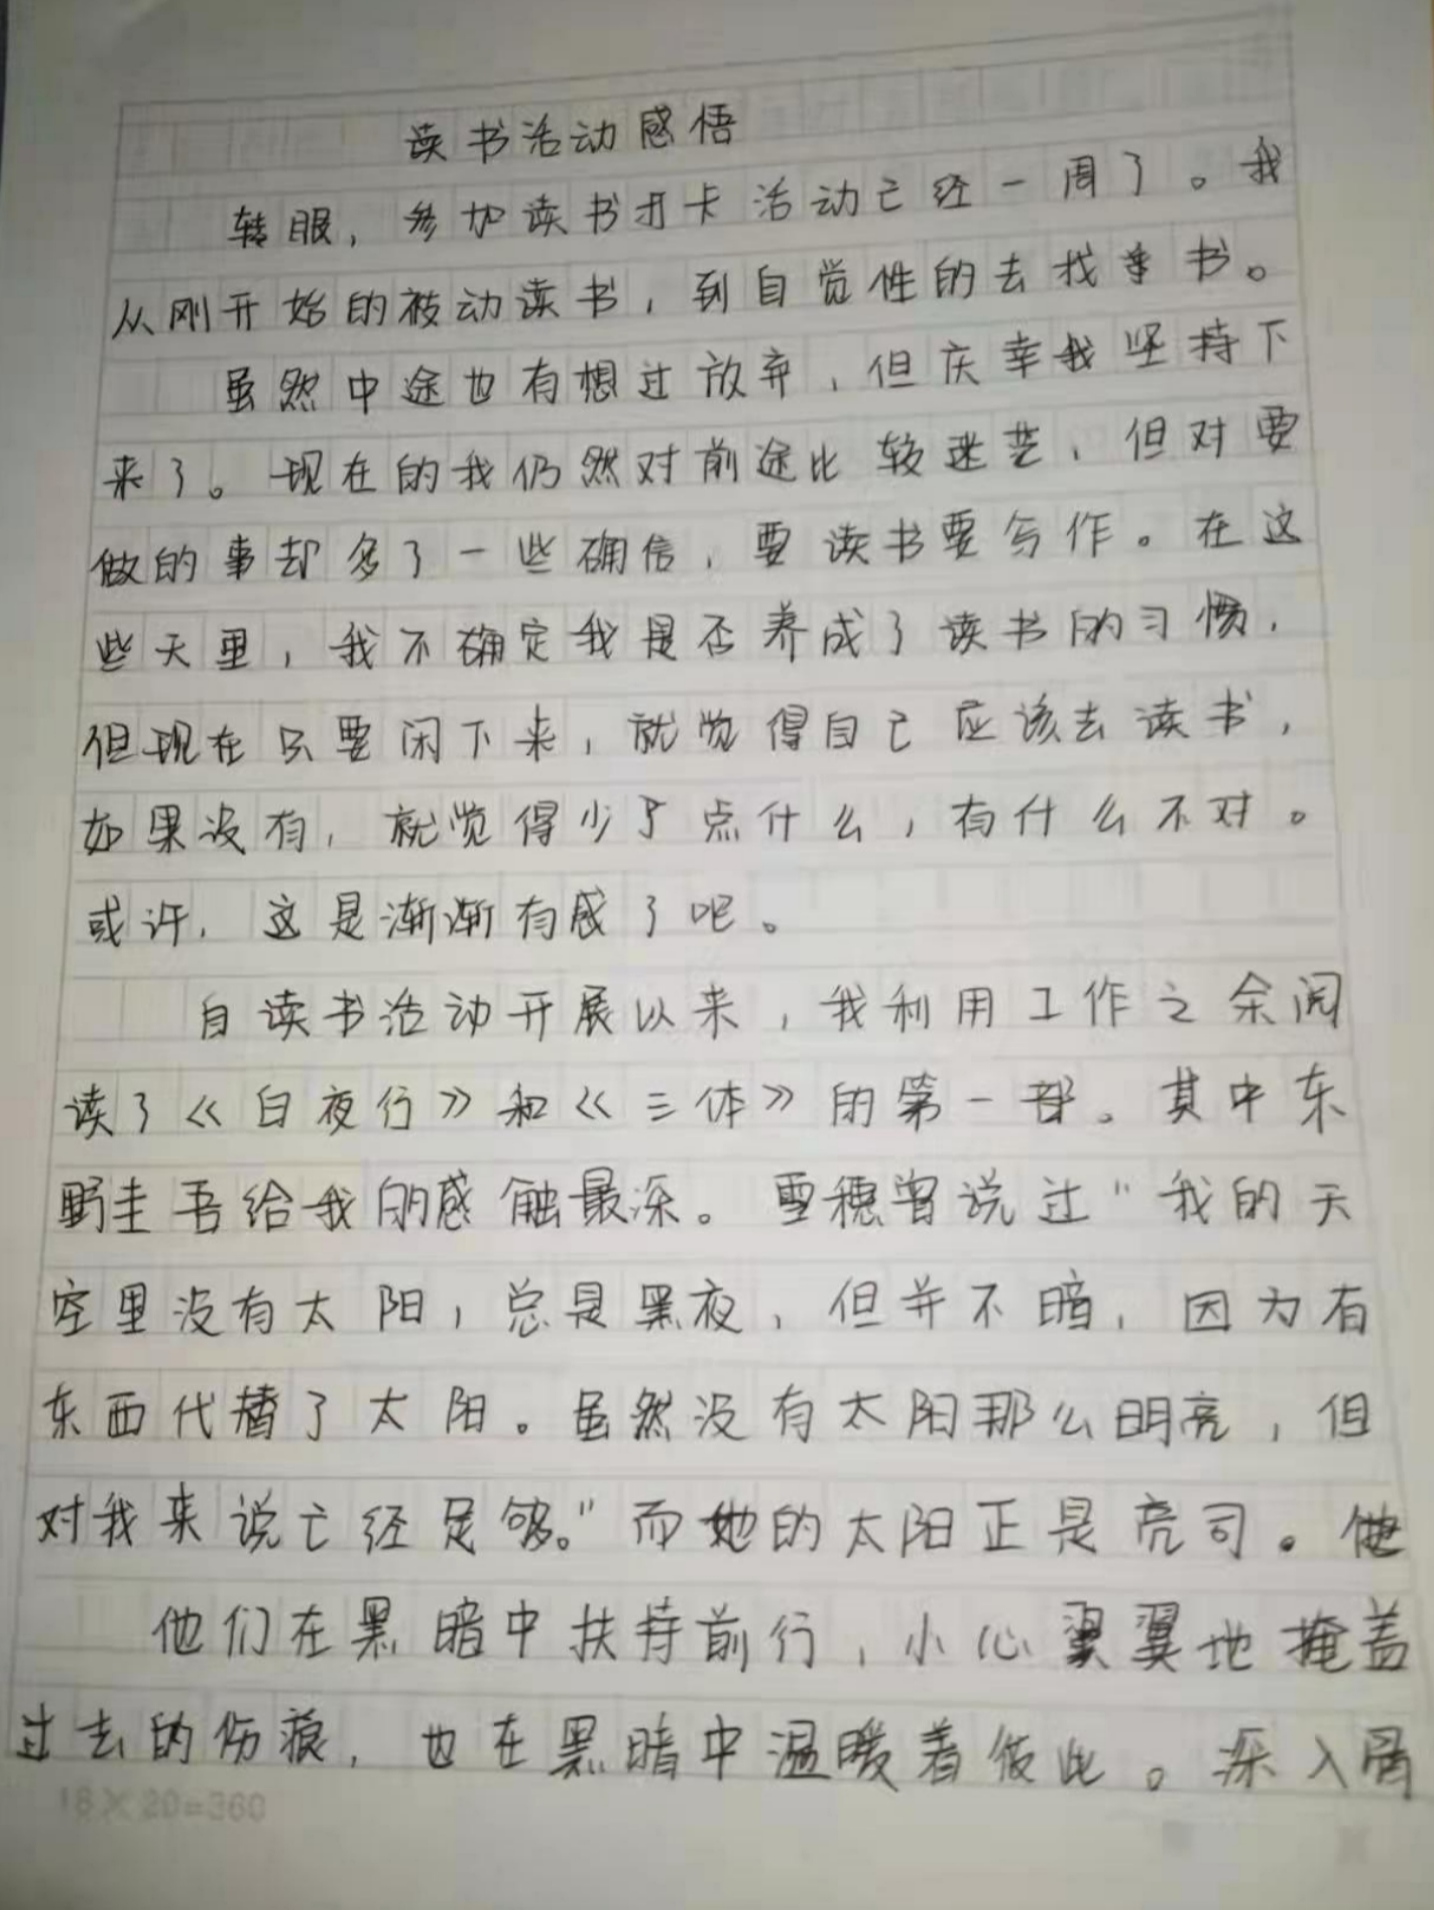 读书活动感悟
转眼，参加读书打卡活动已经一周了。我
从刚开始的被动读书，到自觉性的去找拿书。
虽然中途也有想过放弃，但庆幸我坚持下
来了。现在的我仍然对前途比较迷茫，但对要
做的事却多了一些确信，要读书要写作。在这
些天里，我不确定我是否养成了读书的习惯，
但现在只要闲下来，就觉得自己应该去读书，
如果没有，就觉得少了点什么，有什么不对。
或许，这是渐渐有感了吧。
自读书活动开展以来，我利用工作之余阅
读了《白夜行》和《三体》的第一部。其中东
野圭吾给我的感触最深。雪穗曾说过"我的天
空里没有太阳，总是黑夜，但并不暗，因为有
东西代替了太阳。虽然没有太阳那么明亮，但
对我来说已经足够。"而她的太阳正是亮司。他
他们在黑暗中扶持前行，小心翼翼地掩盖
过去的伤痕，也在黑暗中温暖着彼此。深入骨
18×20=360